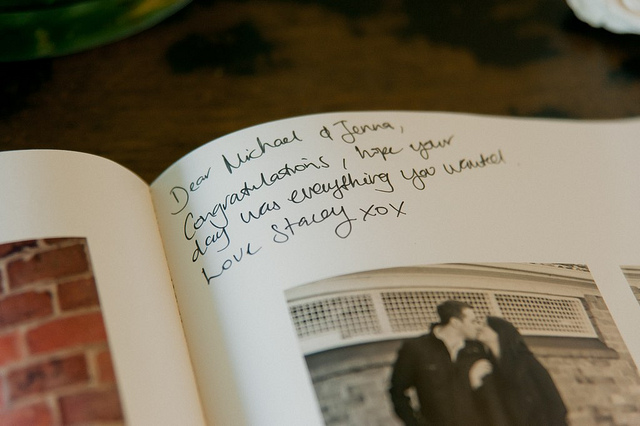 Dear Michael & Jenna,
Congratulations, hope your
day was everything you wanted.
Love Stacey xox